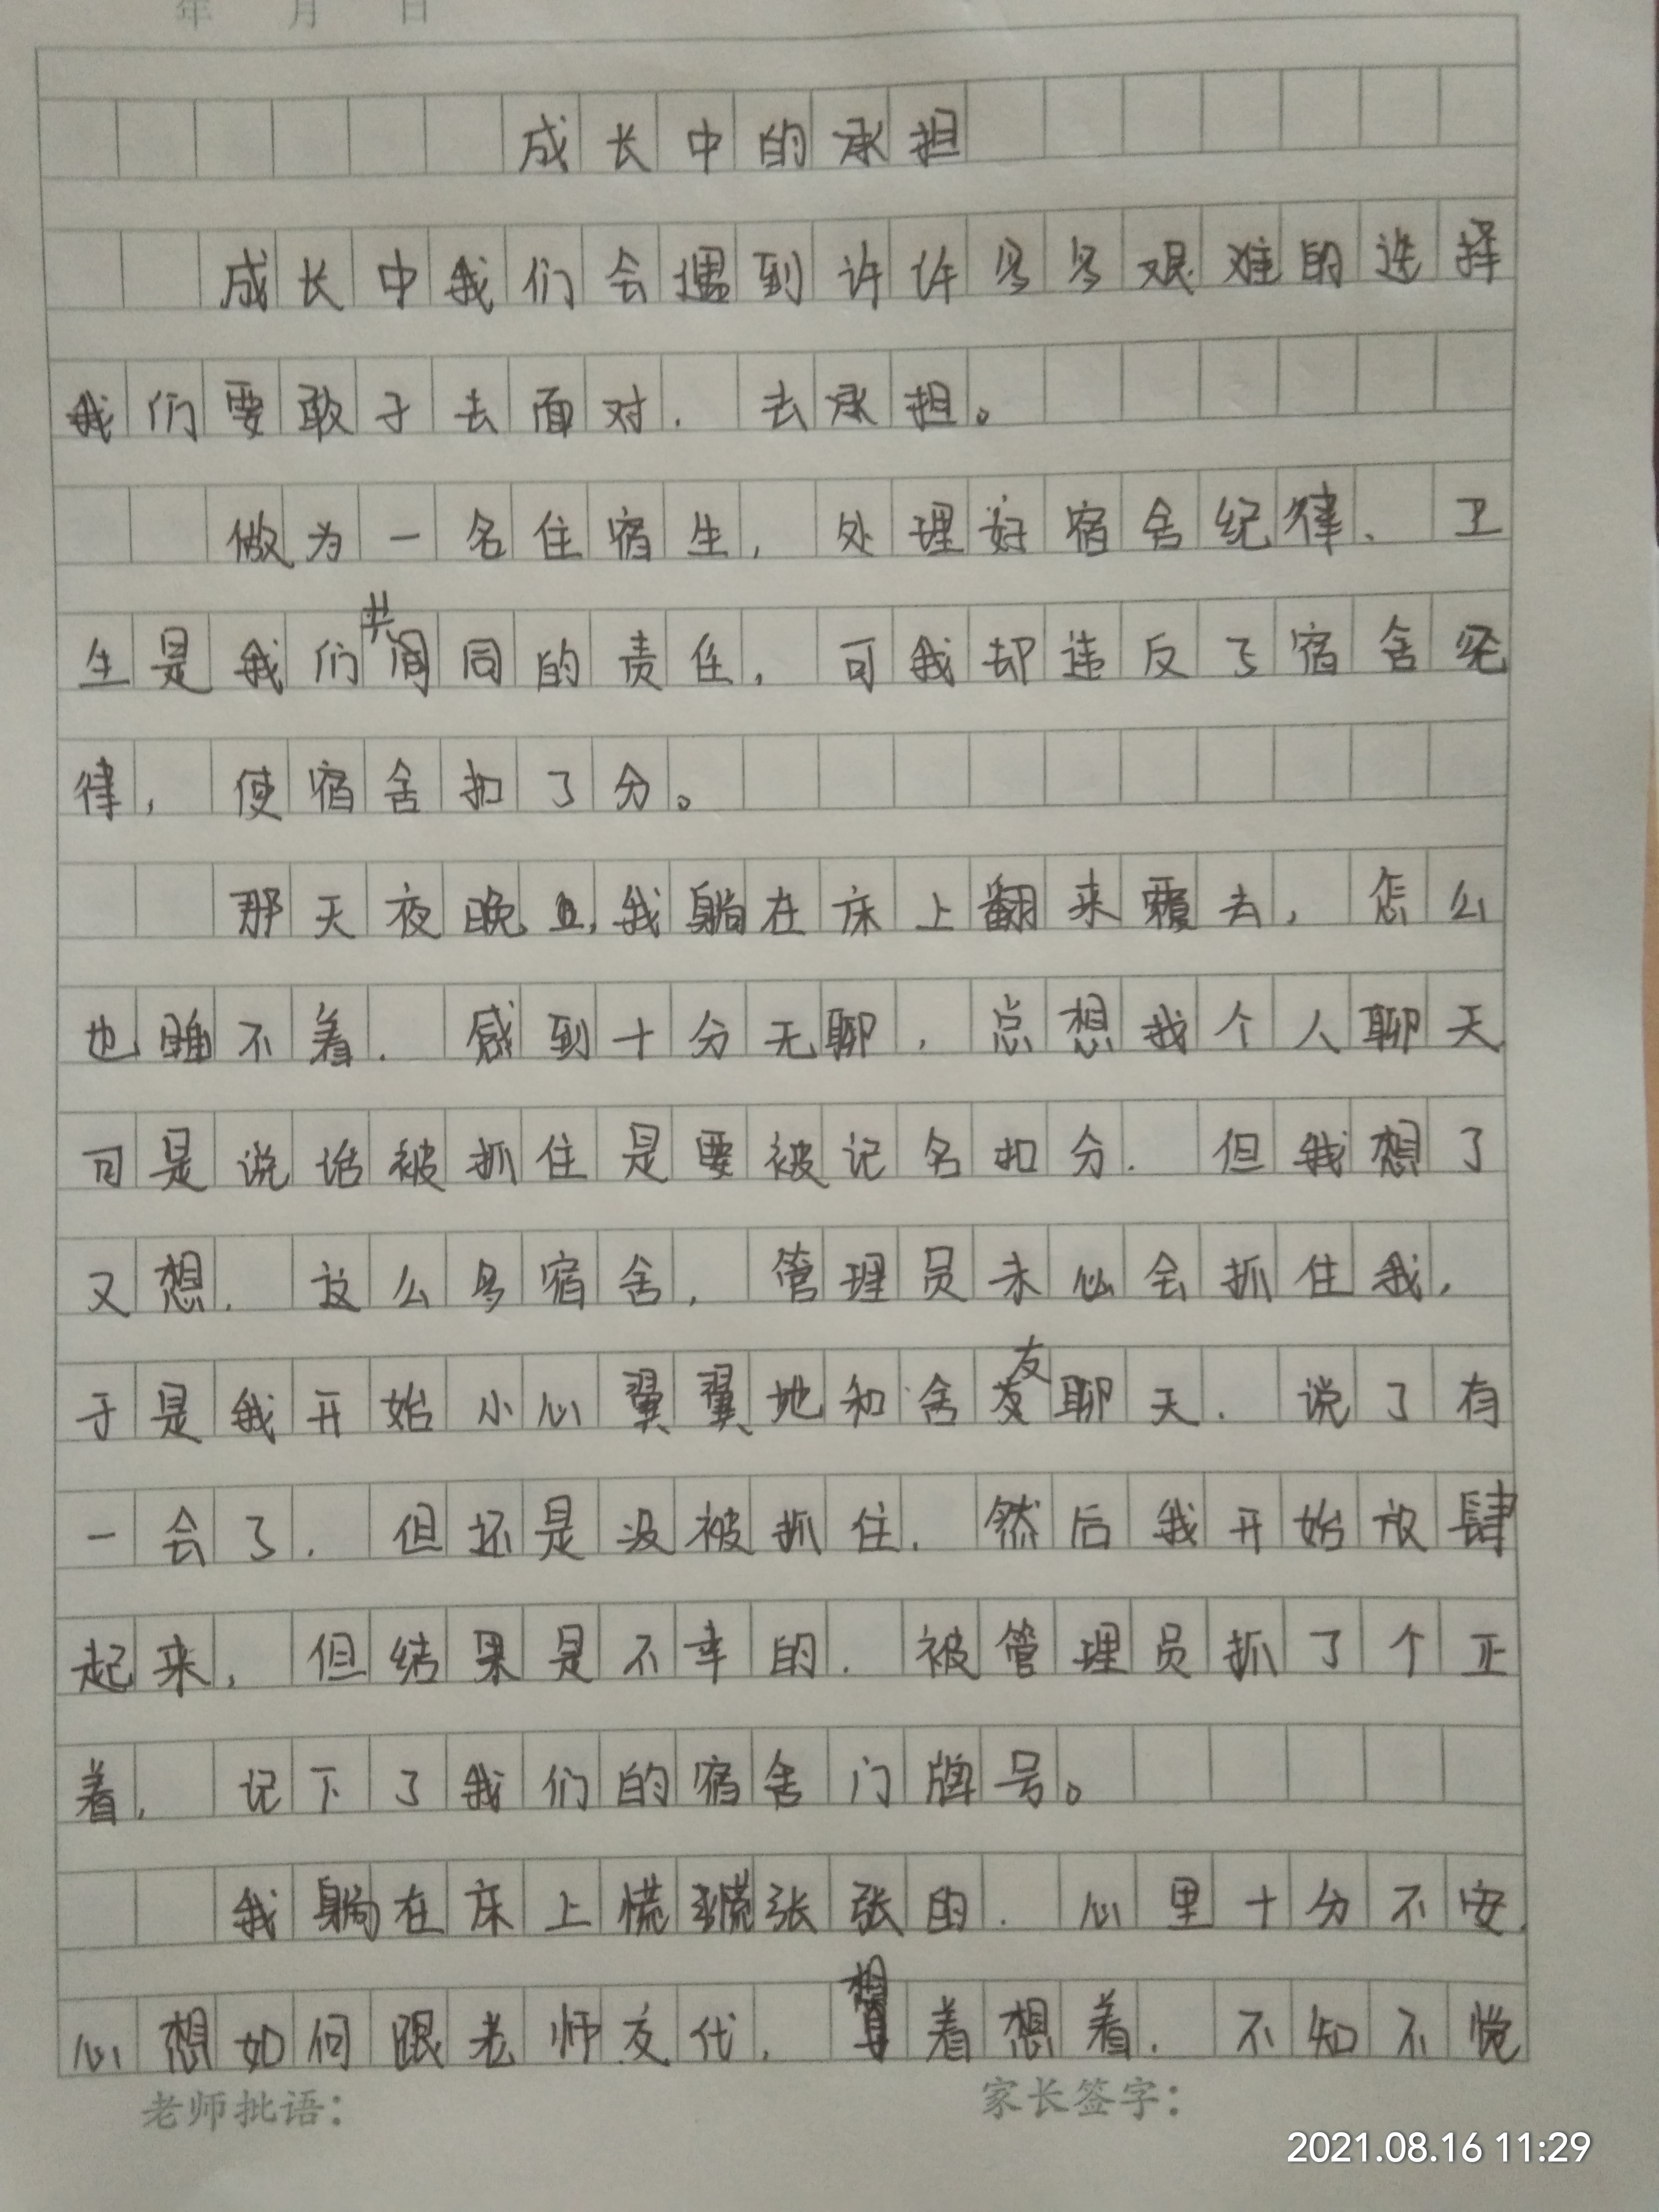 年 月 日
成长中的承担
成长中我们会遇到许许多多艰难的选择
我们要敢于去面对，去承担。
做为一名住宿生，处理好宿舍纪律、卫
生是我们共同的责任，可我却违反了宿舍纪
律，使宿舍扣了分。
那天夜晚，我躺在床上翻来覆去，怎么
也睡不着．感到十分无聊，总想找个人聊天
可是说话被抓住是要被记名扣分．但我想了
又想．这么多宿舍，管理员未必会抓住我，
于是我开始小心翼翼地和舍友聊天．说了有
一会了．但还是没被抓住．然后我开始放肆
起来，但结果是不幸的．被管理员抓了个正
着，记下了我们的宿舍门牌号。
我躺在床上慌慌张张的．心里十分不安，
心想如何跟老师交代，想着想着．不知不觉
老师批语：
家长签字：
2021.08.16 11:29